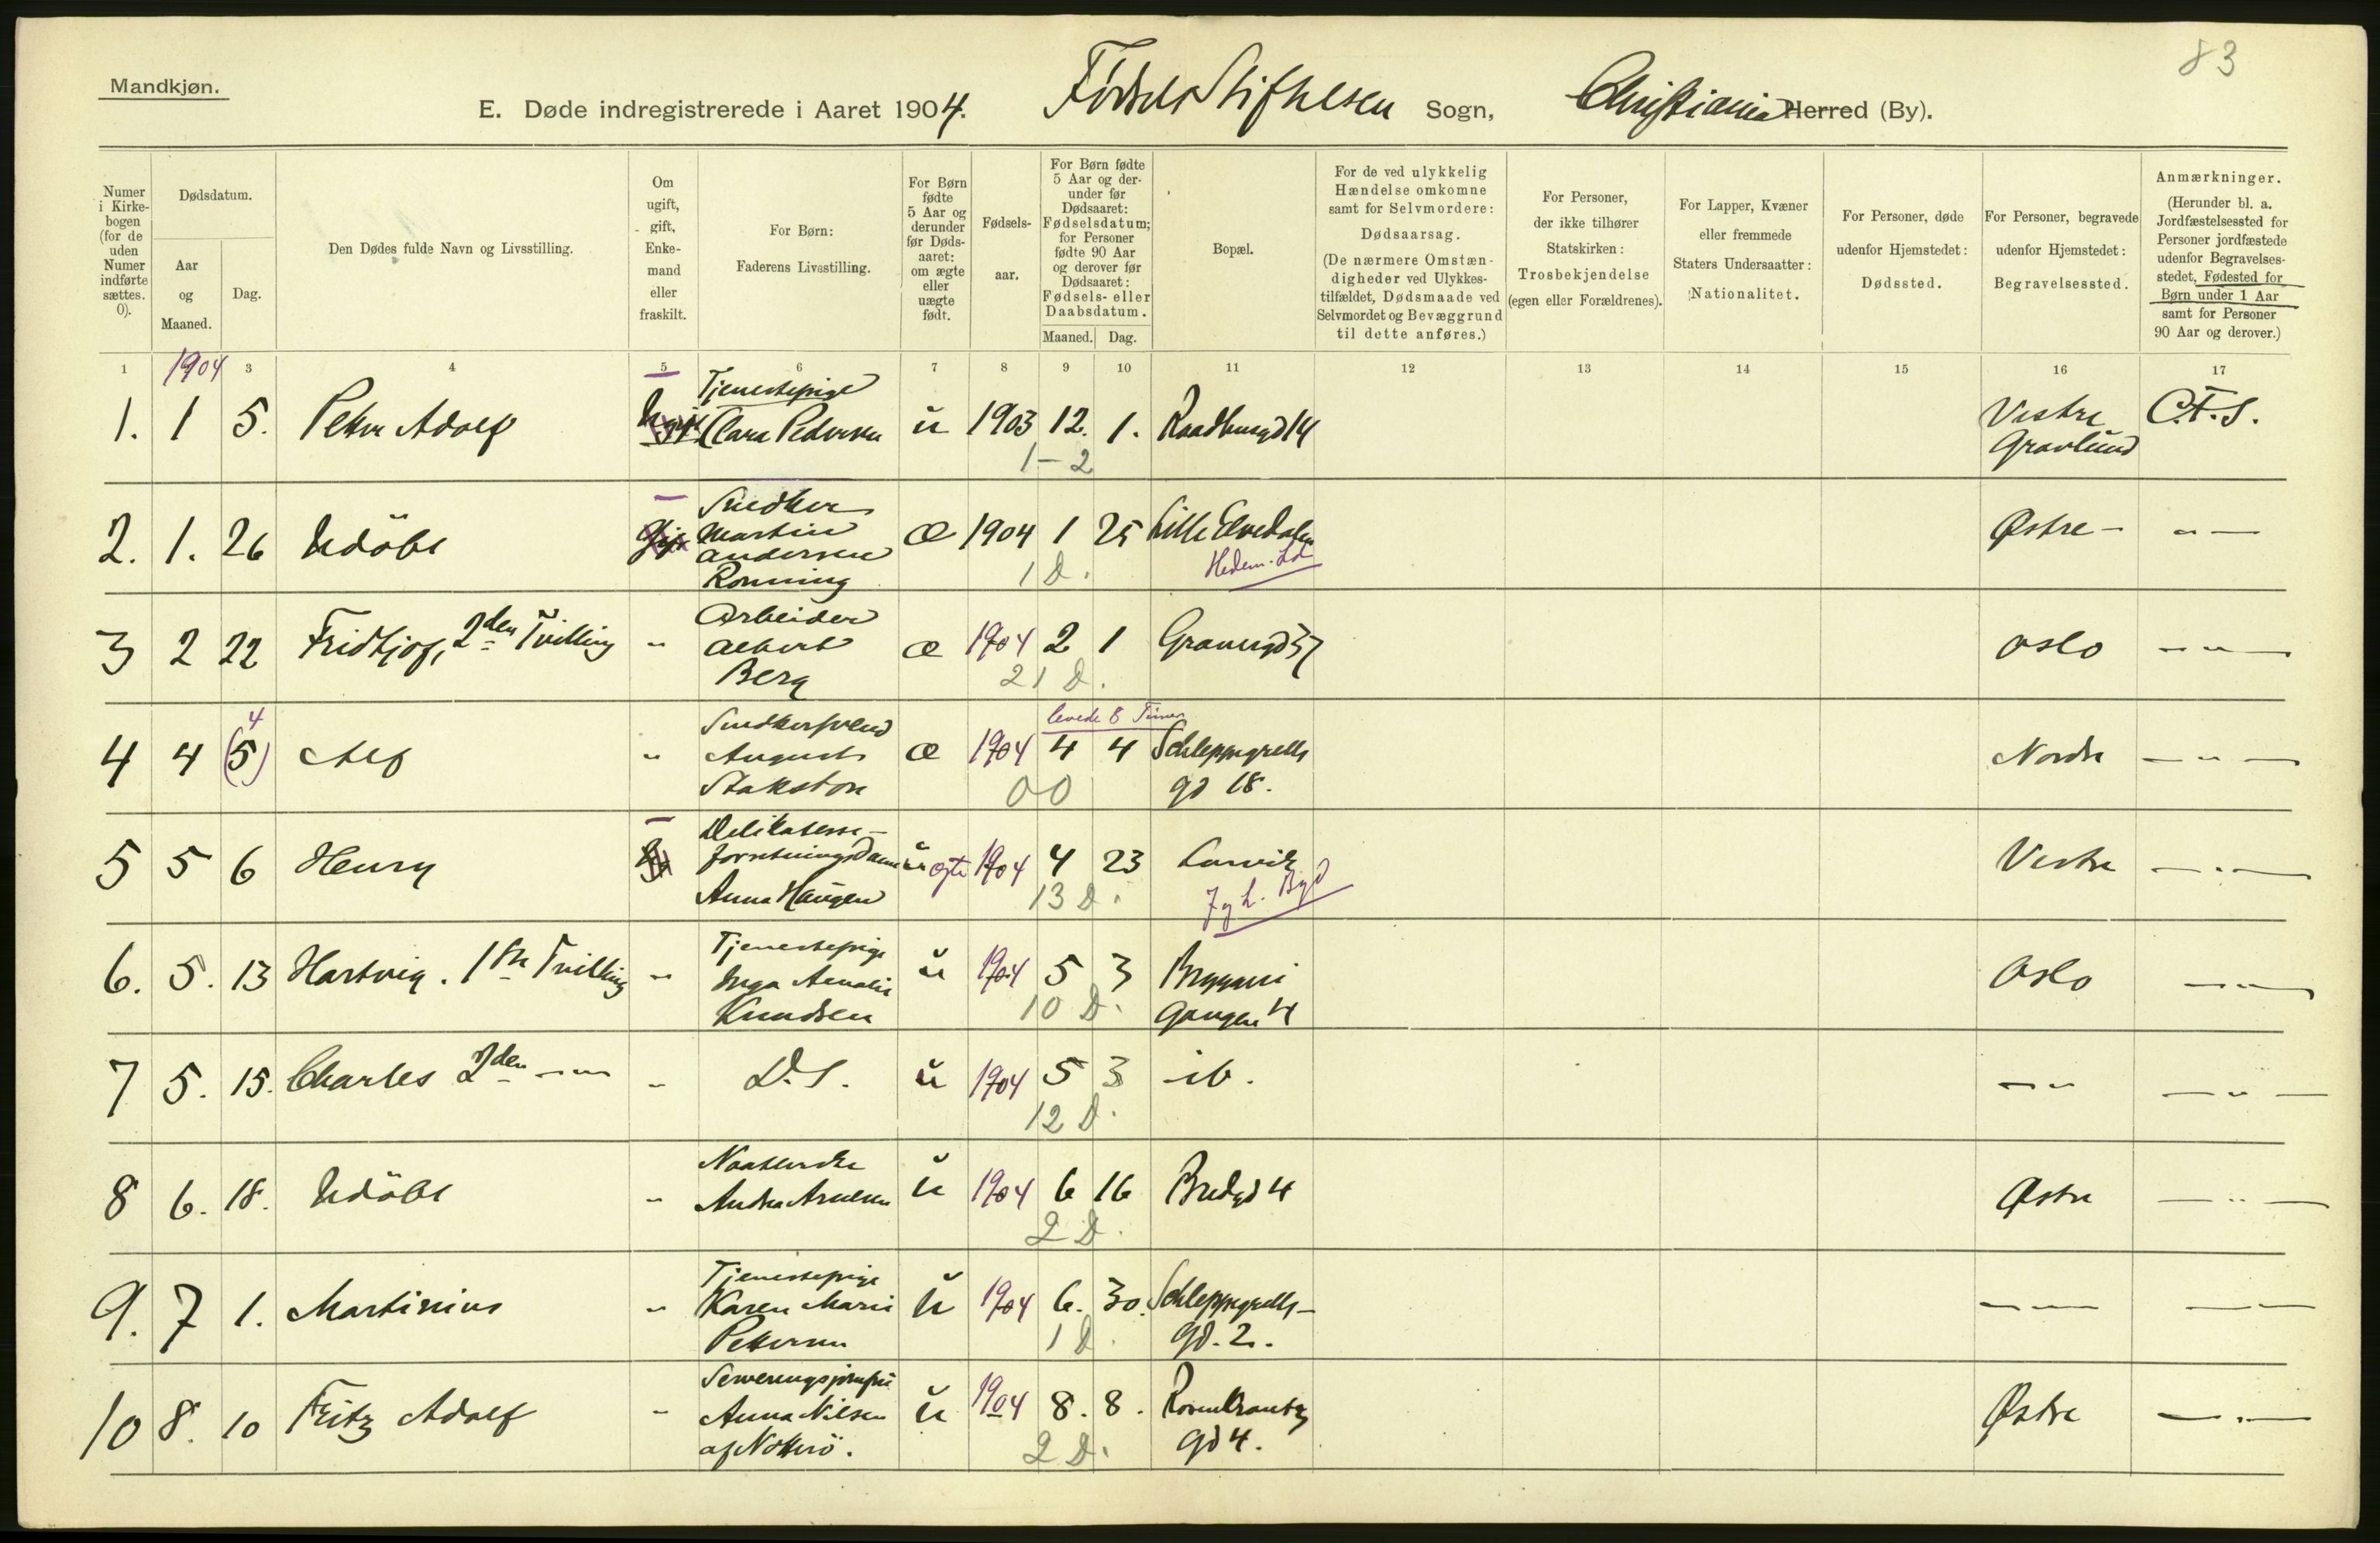 83
Mandkjøn.
E. Døde indregistrerede i Aaret 1904. Fødsels Stiftelsen Sogn, Christiania Herred (By).
Numer i Kirkebogen (for de uden Numer indførte sættes. 0).
Dødsdatum.
Aar og Maaned.
Dag.
Den Dødes fulde Navn og Livsstilling.
Om ugift, gift, Enkemand eller fraskilt.
For Børn: Faderens Livsstilling.
For Børn fødte 5 Aar og derunder før Dødsaaret: om ægte eller uægte født.
Fødselsaar.
For Børn fødte 5 Aar og derunder før Dødsaaret: Fødselsdatum; for Personer fødte 90 Aar og derover før Dødsaaret: Fødsels- eller Daabsdatum.
Maaned. Dag.
Bopæl.
For de ved ulykkelig Hændelse omkomne samt for Selvmordere: Dødsaarsag. (De nærmere Omstændigheder ved Ulykkestilfældet, Dødsmaade ved Selvmordet og Bevæggrund til dette anføres.)
For Personer, der ikke tilhører Statskirken: Trosbekjendelse (egen eller Forældrenes).
For Lapper, Kvæner eller fremmede Staters Undersaatter: Nationalitet.
For Personer, døde udenfor Hjemstedet: Dødssted.
For Personer, begravede udenfor Hjemstedet: Begravelsessted.
Anmærkninger. (Herunder bl. a. Jordfæstelsessted for Personer jordfæstede udenfor Begravelsesstedet, Fødested for Børn under 1 Aar samt for Personer 90 Aar og derover.)
1 1904 3 4 5 6 7 8 9 10 11 12 13 14 15 16 17
1. 1 5. Peter Adolf Tjenestepige Clara Pedersen u 1903 12. 1. Raadhusgd 14 Vestre Gravlund C.F.S.
1 – 2
2. 1. 26 Udöbt Snedker Martin Andersen Ronning Æ 1904 1 25 Lille Elvedalen Østre – " —
1 D. Hedem. Ld
3 2 22 Fridtjof, 2den Tvilling " Arbeider Albert Berg æ 1904 2 1 Grønnegd 37 Oslo — " —
21 D.
4 4 (5) 4 Alf " Snedkersvend August Stakston æ 1904 4 4 Schleppegrells gd 18. Nordre — " —
levede 8 Timer
00
5 5 6 Henry Delikatesseforretningsdame Anna Haugen u ægte 1904 4 23 Larvik Vestre — " —
13 D. J. g L. Byd
6. 5. 13 Hartvig. 1ste Tvilling " Tjenestepige Inga Amalie Knudsen u 1904 5 3 Bryggeri Gangen 4 Oslo — " —
10 D.
7 5. 15. Charles 2den — " — " D.S. u 1904 5 3 ib. — " — " —
12 D.
8 6. 18. Udöbt " Andrea u 1904 6 16 Bredgd 4 Østre — " —
2 D.
9. 7 1. Martinius " Tjenestepige Karen Marie Pettersen u 1904 6. 30. Schleppegrells gd. 2. — " — — " —
1 D.
10 8. 10 Fritz Adolf " Serveringsjomfru Anna Nilsen af Nötterö. u 1904 8. 8. Rosenkrantz gd 4. Østre — " —
2 D.